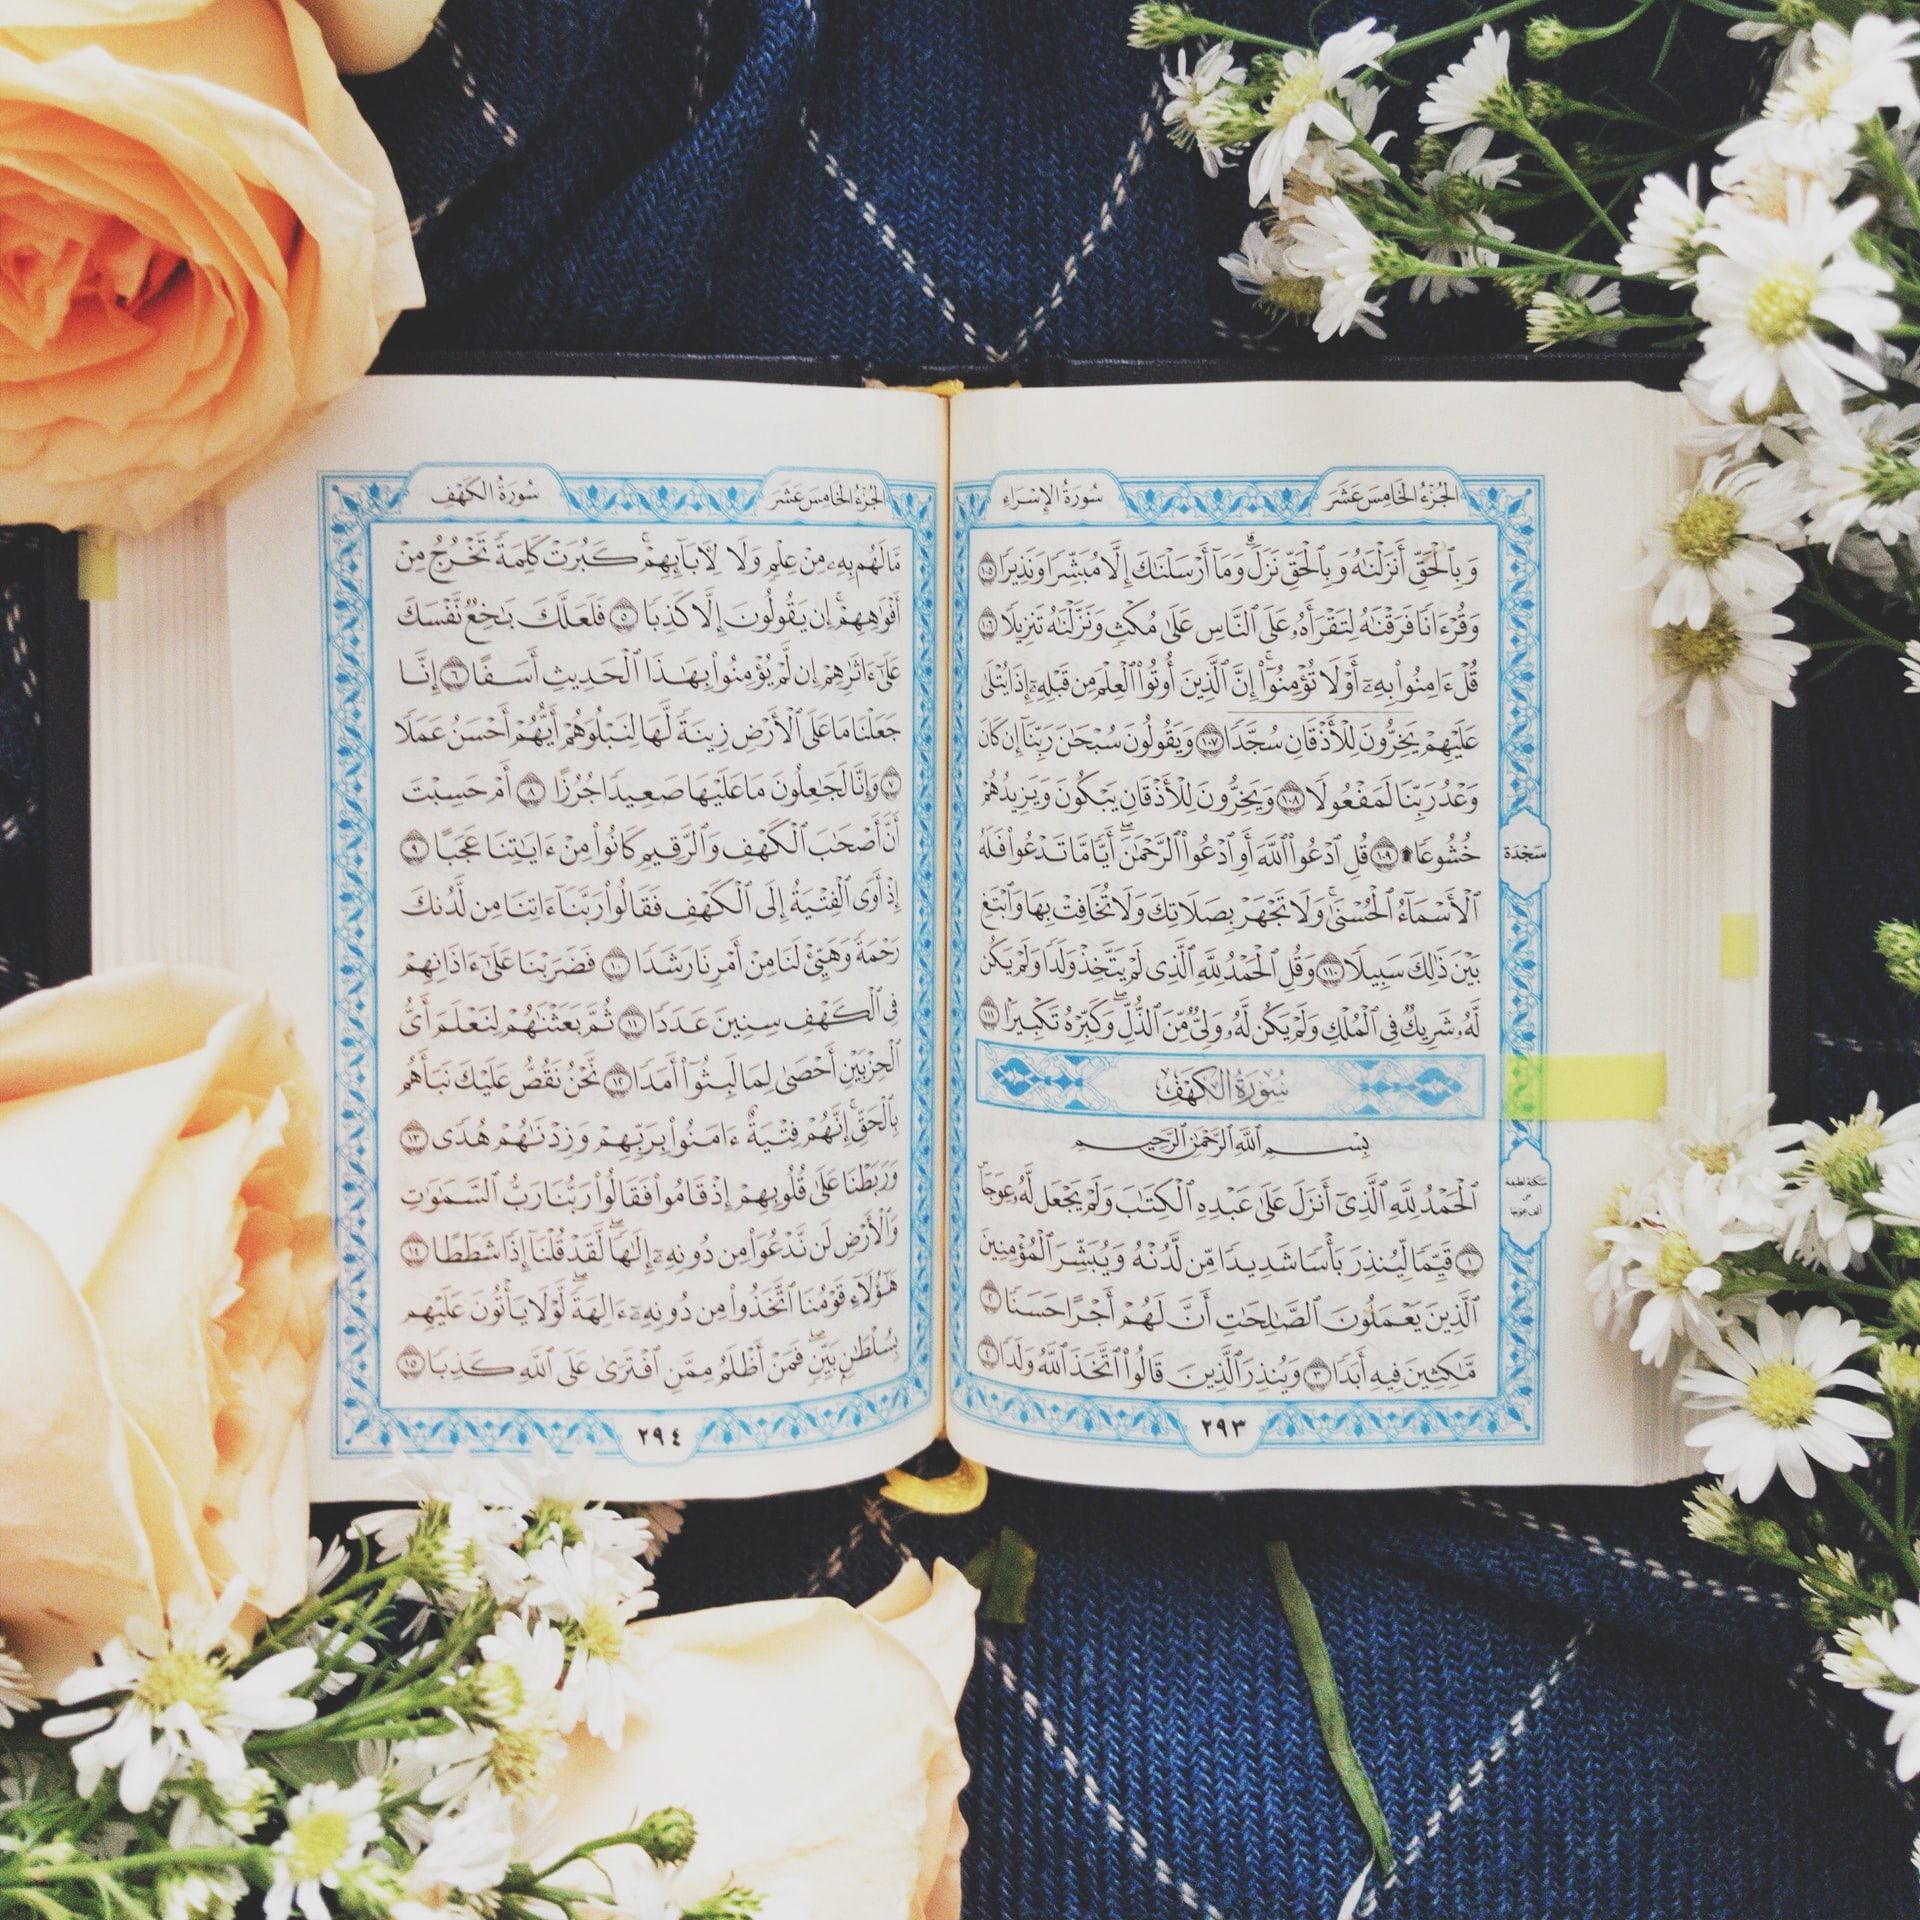 الجزء الخامس عشر
سورة الإسراء
وَبِٱلْحَقِّ أَنزَلْنَٰهُ وَبِٱلْحَقِّ نَزَلَ ۗ وَمَآ أَرْسَلْنَٰكَ إِلَّا مُبَشِّرًا وَنَذِيرًا ١٠٥
وَقُرْءَانًا فَرَقْنَٰهُ لِتَقْرَأَهُۥ عَلَى ٱلنَّاسِ عَلَىٰ مُكْثٍ وَنَزَّلْنَٰهُ تَنزِيلًا ١٠٦
قُلْ ءَامِنُوا۟ بِهِۦٓ أَوْ لَا تُؤْمِنُوٓا۟ ۚ إِنَّ ٱلَّذِينَ أُوتُوا۟ ٱلْعِلْمَ مِن قَبْلِهِۦٓ إِذَا يُتْلَىٰ
عَلَيْهِمْ يَخِرُّونَ لِلْأَذْقَانِ سُجَّدًا ١٠٧ وَيَقُولُونَ سُبْحَٰنَ رَبِّنَآ إِن كَانَ
وَعْدُ رَبِّنَا لَمَفْعُولًا ١٠٨ وَيَخِرُّونَ لِلْأَذْقَانِ يَبْكُونَ وَيَزِيدُهُمْ
خُشُوعًا ۩ ١٠٩ قُلِ ٱدْعُوا۟ ٱللَّهَ أَوِ ٱدْعُوا۟ ٱلرَّحْمَٰنَ ۖ أَيًّا مَّا تَدْعُوا۟ فَلَهُ
سجدة
ٱلْأَسْمَآءُ ٱلْحُسْنَىٰ ۚ وَلَا تَجْهَرْ بِصَلَاتِكَ وَلَا تُخَافِتْ بِهَا وَٱبْتَغِ
بَيْنَ ذَٰلِكَ سَبِيلًا ١١٠ وَقُلِ ٱلْحَمْدُ لِلَّهِ ٱلَّذِى لَمْ يَتَّخِذْ وَلَدًا وَلَمْ يَكُن
لَّهُۥ شَرِيكٌ فِى ٱلْمُلْكِ وَلَمْ يَكُن لَّهُۥ وَلِىٌّ مِّنَ ٱلذُّلِّ ۖ وَكَبِّرْهُ تَكْبِيرًۢا ١١١
سورة الكهف
بِسْمِ ٱللَّهِ ٱلرَّحْمَٰنِ ٱلرَّحِيمِ
ٱلْحَمْدُ لِلَّهِ ٱلَّذِىٓ أَنزَلَ عَلَىٰ عَبْدِهِ ٱلْكِتَٰبَ وَلَمْ يَجْعَل لَّهُۥ عِوَجَا ۜ
سكتة لطيفة
على
ألف عوجا
١ قَيِّمًا لِّيُنذِرَ بَأْسًا شَدِيدًا مِّن لَّدُنْهُ وَيُبَشِّرَ ٱلْمُؤْمِنِينَ
ٱلَّذِينَ يَعْمَلُونَ ٱلصَّٰلِحَٰتِ أَنَّ لَهُمْ أَجْرًا حَسَنًا ٢
مَّٰكِثِينَ فِيهِ أَبَدًا ٣ وَيُنذِرَ ٱلَّذِينَ قَالُوا۟ ٱتَّخَذَ ٱللَّهُ وَلَدًا ٤
٢٩٣
الجزء الخامس عشر
سورة الكهف
مَّا لَهُم بِهِۦ مِنْ عِلْمٍ وَلَا لِءَابَآئِهِمْ ۚ كَبُرَتْ كَلِمَةً تَخْرُجُ مِنْ
أَفْوَٰهِهِمْ ۚ إِن يَقُولُونَ إِلَّا كَذِبًا ٥ فَلَعَلَّكَ بَٰخِعٌ نَّفْسَكَ
عَلَىٰٓ ءَاثَٰرِهِمْ إِن لَّمْ يُؤْمِنُوا۟ بِهَٰذَا ٱلْحَدِيثِ أَسَفًا ٦ إِنَّا
جَعَلْنَا مَا عَلَى ٱلْأَرْضِ زِينَةً لَّهَا لِنَبْلُوَهُمْ أَيُّهُمْ أَحْسَنُ عَمَلًا
٧ وَإِنَّا لَجَٰعِلُونَ مَا عَلَيْهَا صَعِيدًا جُرُزًا ٨ أَمْ حَسِبْتَ
أَنَّ أَصْحَٰبَ ٱلْكَهْفِ وَٱلرَّقِيمِ كَانُوا۟ مِنْ ءَايَٰتِنَا عَجَبًا ٩
إِذْ أَوَى ٱلْفِتْيَةُ إِلَى ٱلْكَهْفِ فَقَالُوا۟ رَبَّنَآ ءَاتِنَا مِن لَّدُنكَ
رَحْمَةً وَهَيِّئْ لَنَا مِنْ أَمْرِنَا رَشَدًا ١٠ فَضَرَبْنَا عَلَىٰٓ ءَاذَانِهِمْ
فِى ٱلْكَهْفِ سِنِينَ عَدَدًا ١١ ثُمَّ بَعَثْنَٰهُمْ لِنَعْلَمَ أَىُّ
ٱلْحِزْبَيْنِ أَحْصَىٰ لِمَا لَبِثُوٓا۟ أَمَدًا ١٢ نَّحْنُ نَقُصُّ عَلَيْكَ نَبَأَهُم
بِٱلْحَقِّ ۚ إِنَّهُمْ فِتْيَةٌ ءَامَنُوا۟ بِرَبِّهِمْ وَزِدْنَٰهُمْ هُدًى ١٣
وَرَبَطْنَا عَلَىٰ قُلُوبِهِمْ إِذْ قَامُوا۟ فَقَالُوا۟ رَبُّنَا رَبُّ ٱلسَّمَٰوَٰتِ
وَٱلْأَرْضِ لَن نَّدْعُوَا۟ مِن دُونِهِۦٓ إِلَٰهًا ۖ لَّقَدْ قُلْنَآ إِذًا شَطَطًا ١٤
هَٰٓؤُلَآءِ قَوْمُنَا ٱتَّخَذُوا۟ مِن دُونِهِۦٓ ءَالِهَةً ۖ لَّوْلَا يَأْتُونَ عَلَيْهِم
بِسُلْطَٰنٍۭ بَيِّنٍ ۖ فَمَنْ أَظْلَمُ مِمَّنِ ٱفْتَرَىٰ عَلَى ٱللَّهِ كَذِبًا ١٥
٢٩٤